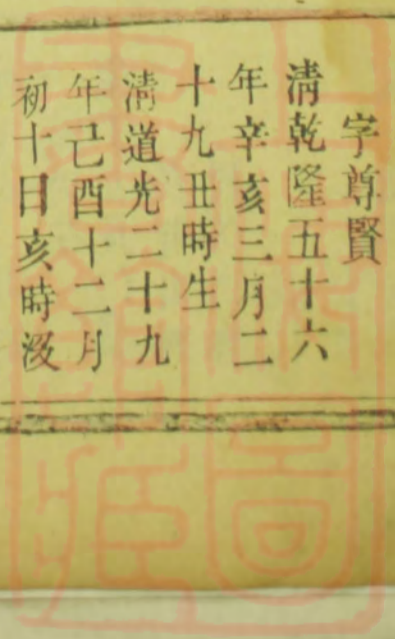 字尊賢
清乾隆五十六
年辛亥三月二
十九丑時生
清道光二十九
年己酉十二月
初十日亥時没